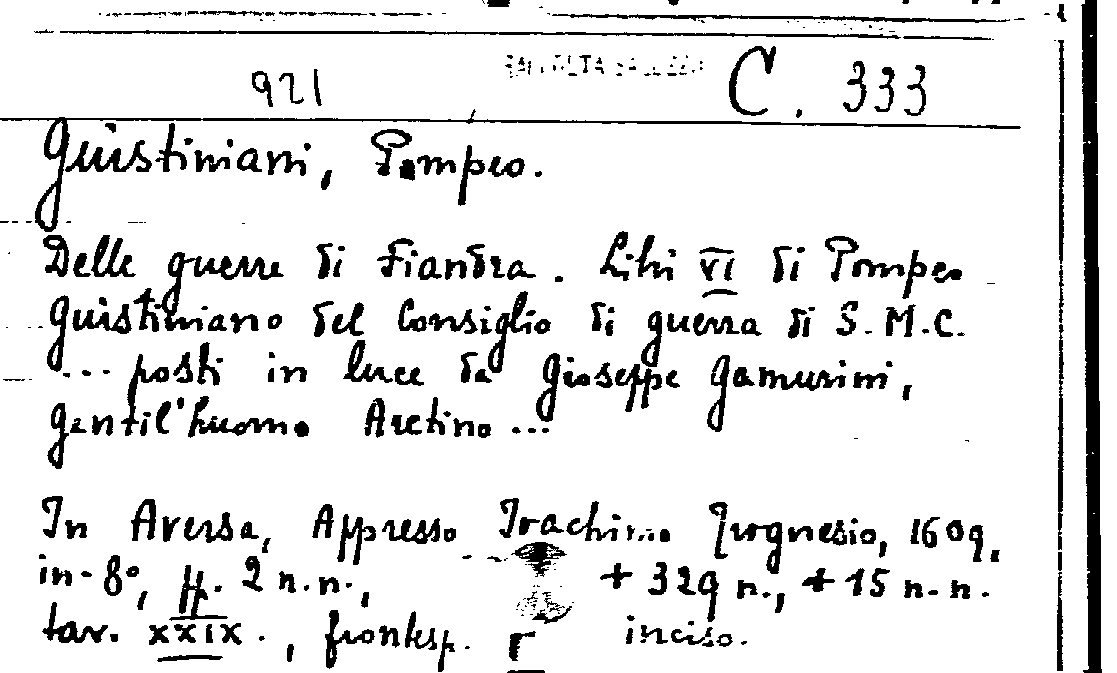 921 RACCOLTA SALUZZO C. 333
Giustiniani, Pompeo.
Delle guerre di Fiandra. Libri VI di Pompeo
Giustiniano del Consiglio di guerra di S.M.C.
... posti in luce da Gioseppe Gamurini,
gentil'huomo Aretino ...
In Aversa, Appresso Trognesio, 1609,
in-8°, pp. 2 n.n., + 329 n., + 15 n.n.
tav. XXIX., frontesp. inciso.